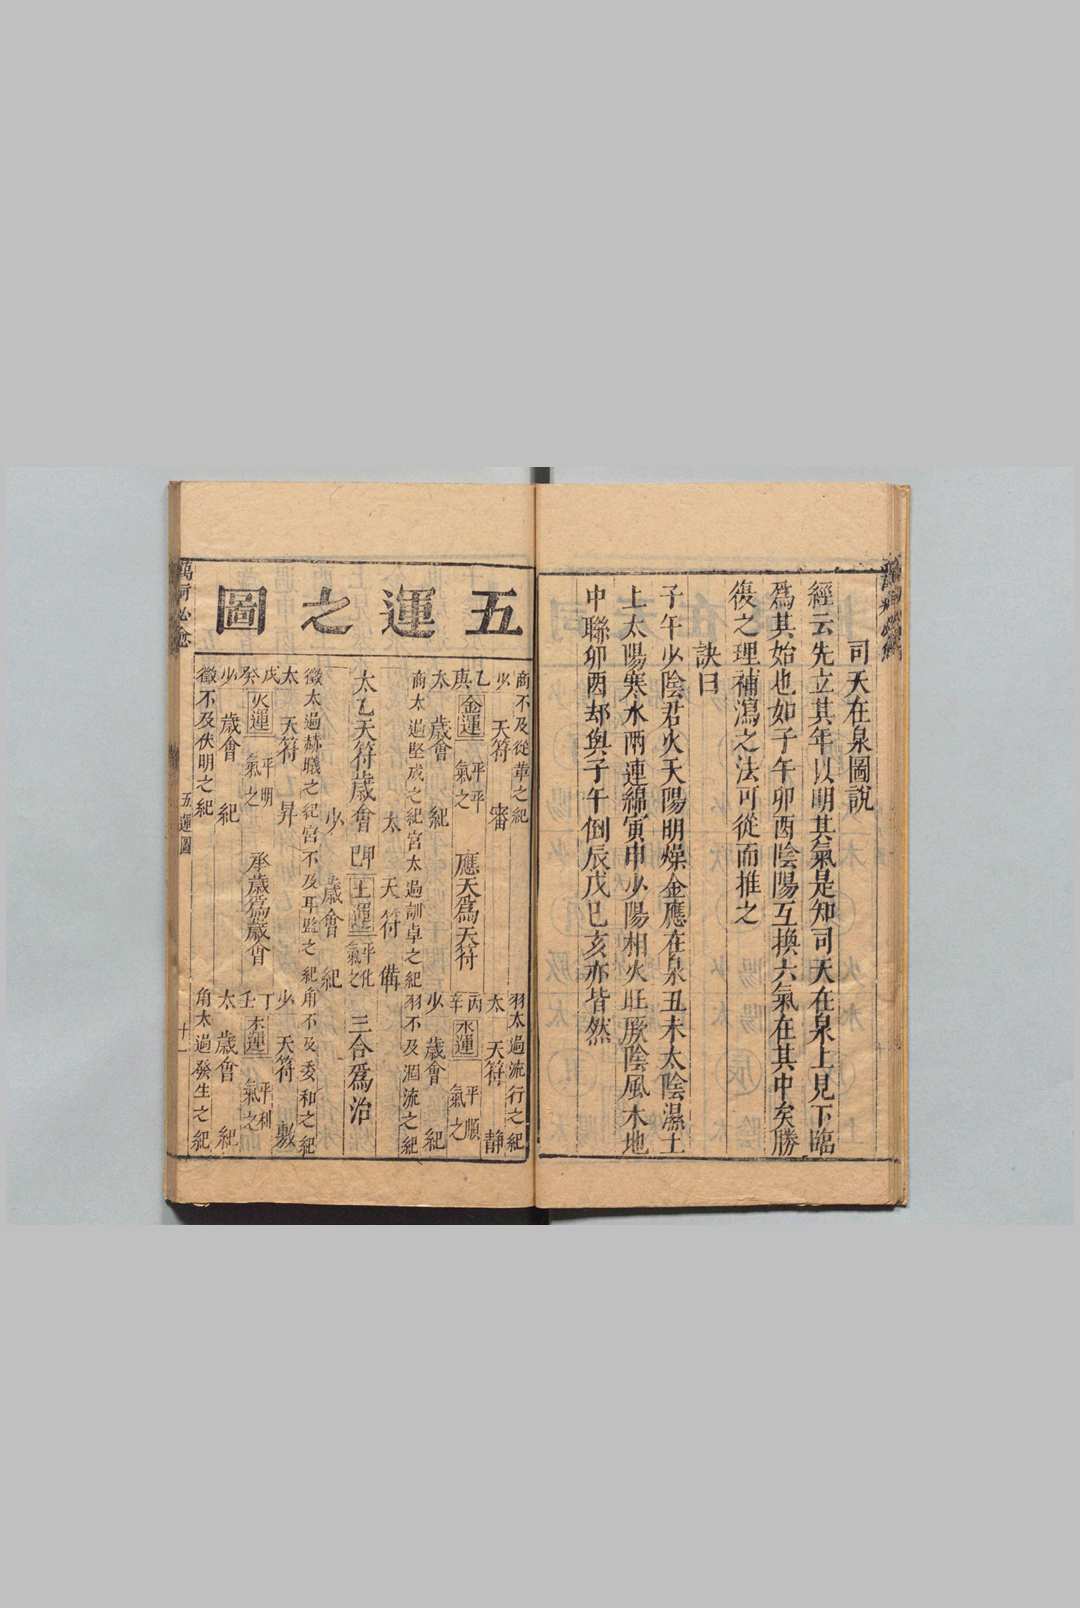 司天在泉圖說
經云先立其年以明其氣是知司天在泉上見下臨
為其始也如子午卯酉陰陽互換六氣在其中矣勝
復之理補瀉之法可從而推之
訣曰
子午少陰君火天陽明燥金應在泉丑未太陰濕土
上太陽寒水兩連綿寅申少陽相火旺厥陰風木地
中聯卯酉却與子午倒辰戌巳亥亦皆然
五運之圖
商不及從革之紀
少 天符 審
乙庚 金運 平氣之
太 歲會 紀
商太過堅成之紀
應天為天符
羽太過流行之紀
太 天符 靜
丙辛 水運 平順氣之
少 歲會 紀
羽不及涸流之紀
太乙天符歲會
宮太過敦阜之紀
太 天符 備
甲 土運 平化氣之
少 歲會 紀
宮不及卑監之紀
三合為治
徵太過赫曦之紀
太 天符 昇
戊癸 火運 平明氣之
少 歲會 紀
徵不及伏明之紀
承歲為歲會
角不及委和之紀
少 天符 敷
丁壬 木運 平氣之
太 歲會 紀
角太過發生之紀
五運圖
十一